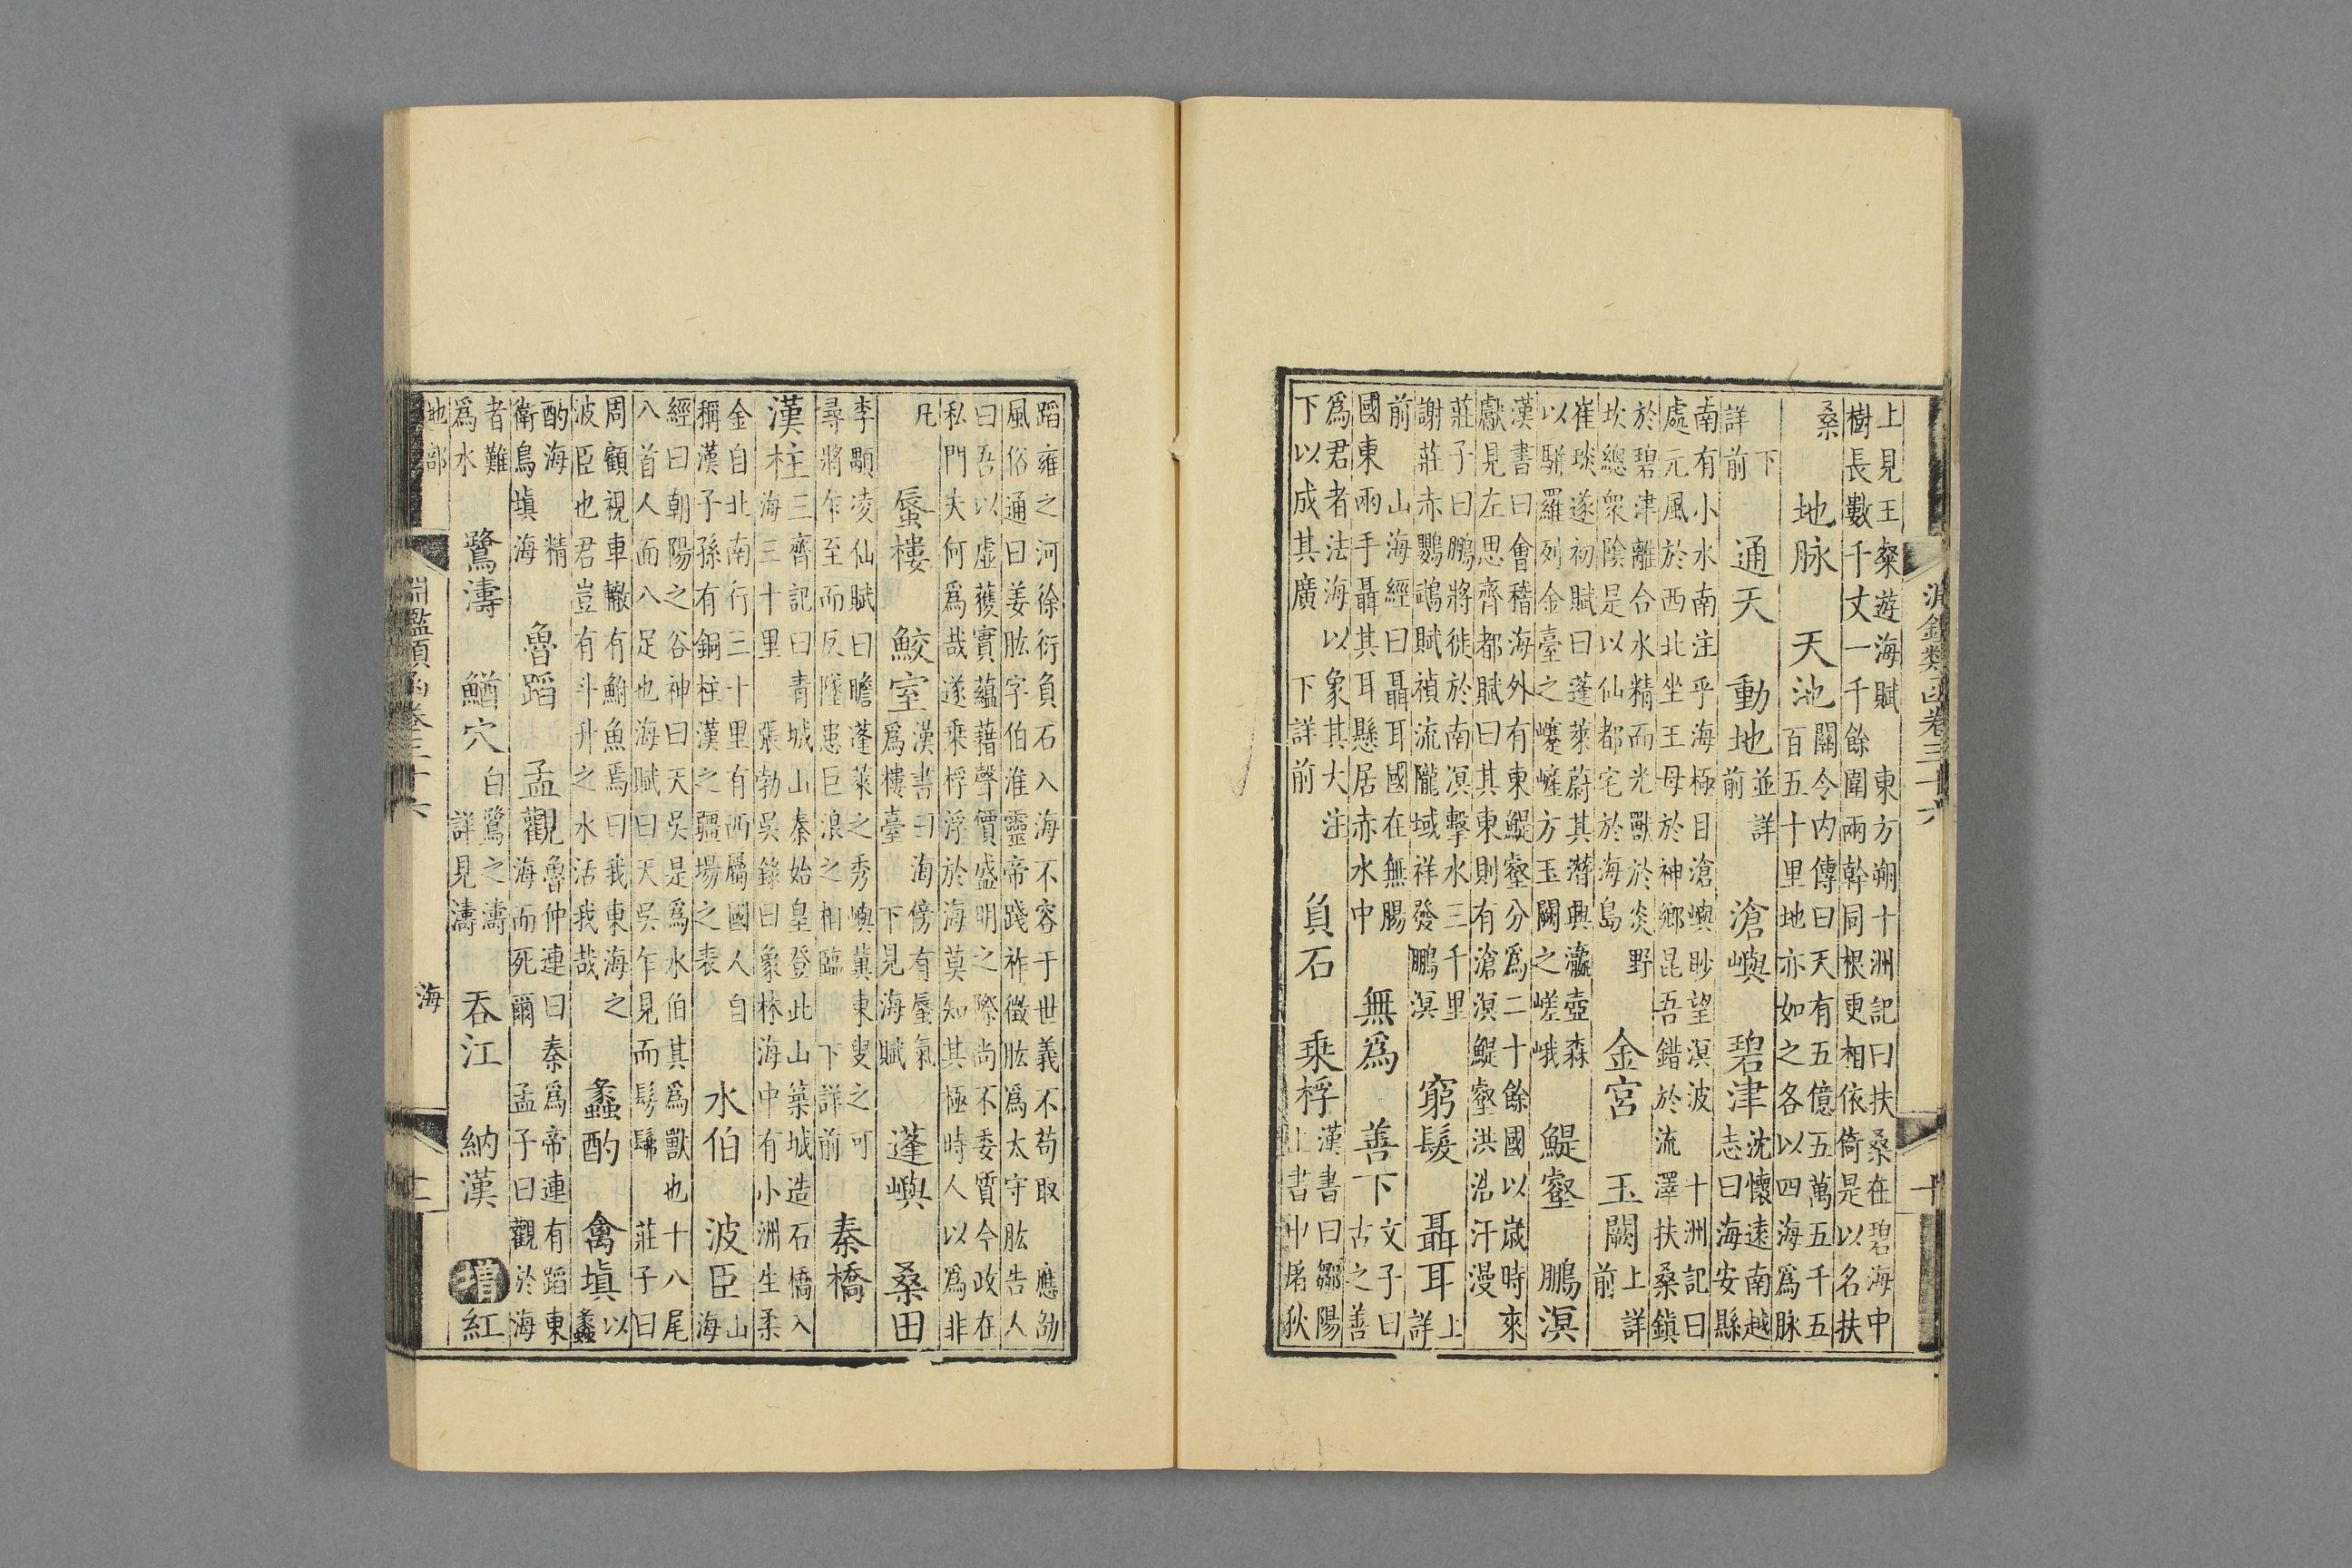 淵鑑類函卷三十六 十
上見王粲遊海賦 東方朔十洲記曰扶桑在碧海中
樹長數千丈一千餘圍兩幹同根更相依倚是以名扶
桑 地脉 天池 關令内傳曰天有五億五萬五千五
百五十里地亦如之各以四海爲脉
下詳前 通天 動地 並詳前 滄嶼 碧津 沈懷遠南越
志曰海安縣
南有小水南注乎海極目滄嶼眇望溟波 十洲記曰
處元風於西北坐王母於神鄉昆吾錯於流澤扶桑鎮
於碧津離合水精而光獸於炎野
坎總衆陰是以仙都宅於海島 金宮 玉闕 上詳前
崔琰遂初賦曰蓬萊蔚其潛興瀛壺森
以駢羅列金臺之蹇嵼方玉闕之嵯峨 鯷壑 鵬溟
漢書曰會稽海外有東鯷壑分爲二十餘國以歲時來
獻見左思齊都賦曰其東則有滄溟鯷壑洪浩汗漫
莊子曰鵬將徙於南溟擊水三千里
謝莊赤鸚鵡賦禎流隴域祥發鵬溟 窮髮 聶耳 上詳
前 山海經曰聶耳國在無腸
國東兩手聶其耳懸居赤水中 無爲 善下 文子曰
古之善
爲君者法海以象其大注
下以成其廣 下詳前 負石 乗桴 漢書曰鄒陽
上書申屠狄
蹈雍之河徐衍負石入海不容于世義不苟取 應劭
風俗通曰姜肱字伯淮靈帝踐祚徵肱爲太守肱告人
曰吾以虛獲實蘊藉聲價盛明之際尚不委質今政在
私門夫何爲哉遂乗桴浮於海莫知其極時人以爲非
凡 蜃樓 鮫室 漢書曰海傍有蜃氣
爲樓臺 下見海賦 蓬嶼 桑田
李顒凌仙賦曰瞻蓬萊之秀嶼冀東叟之可
尋將乍至而反墜患巨浪之相臨 下詳前 秦橋
漢柱 三齊記曰青城山秦始皇登此山築城造石橋入
海三十里 張勃吳錄曰象林海中有小洲生柔
金自北南行三十里有西屬國人自
稱漢子孫有銅柱漢之疆場之表 水伯 波臣 山海
經曰朝陽之谷神曰天吳是爲水伯其爲獸也十八尾
八首人面八足也海賦曰天吳乍見而髣髴 莊子曰
周顧視車轍有鮒魚焉曰我東海之
波臣也君豈有斗升之水活我哉 蠡酌 禽塡 以蠡
酌海 精
衛鳥塡海 魯蹈 孟觀 魯仲連曰秦爲帝連有蹈東
海而死爾 孟子曰觀於海
者難爲水 鷺濤 鰌穴 白鷺之濤
詳見濤 吞江 納漢 增 紅
地部 淵鑑類函卷三十六 海 十一